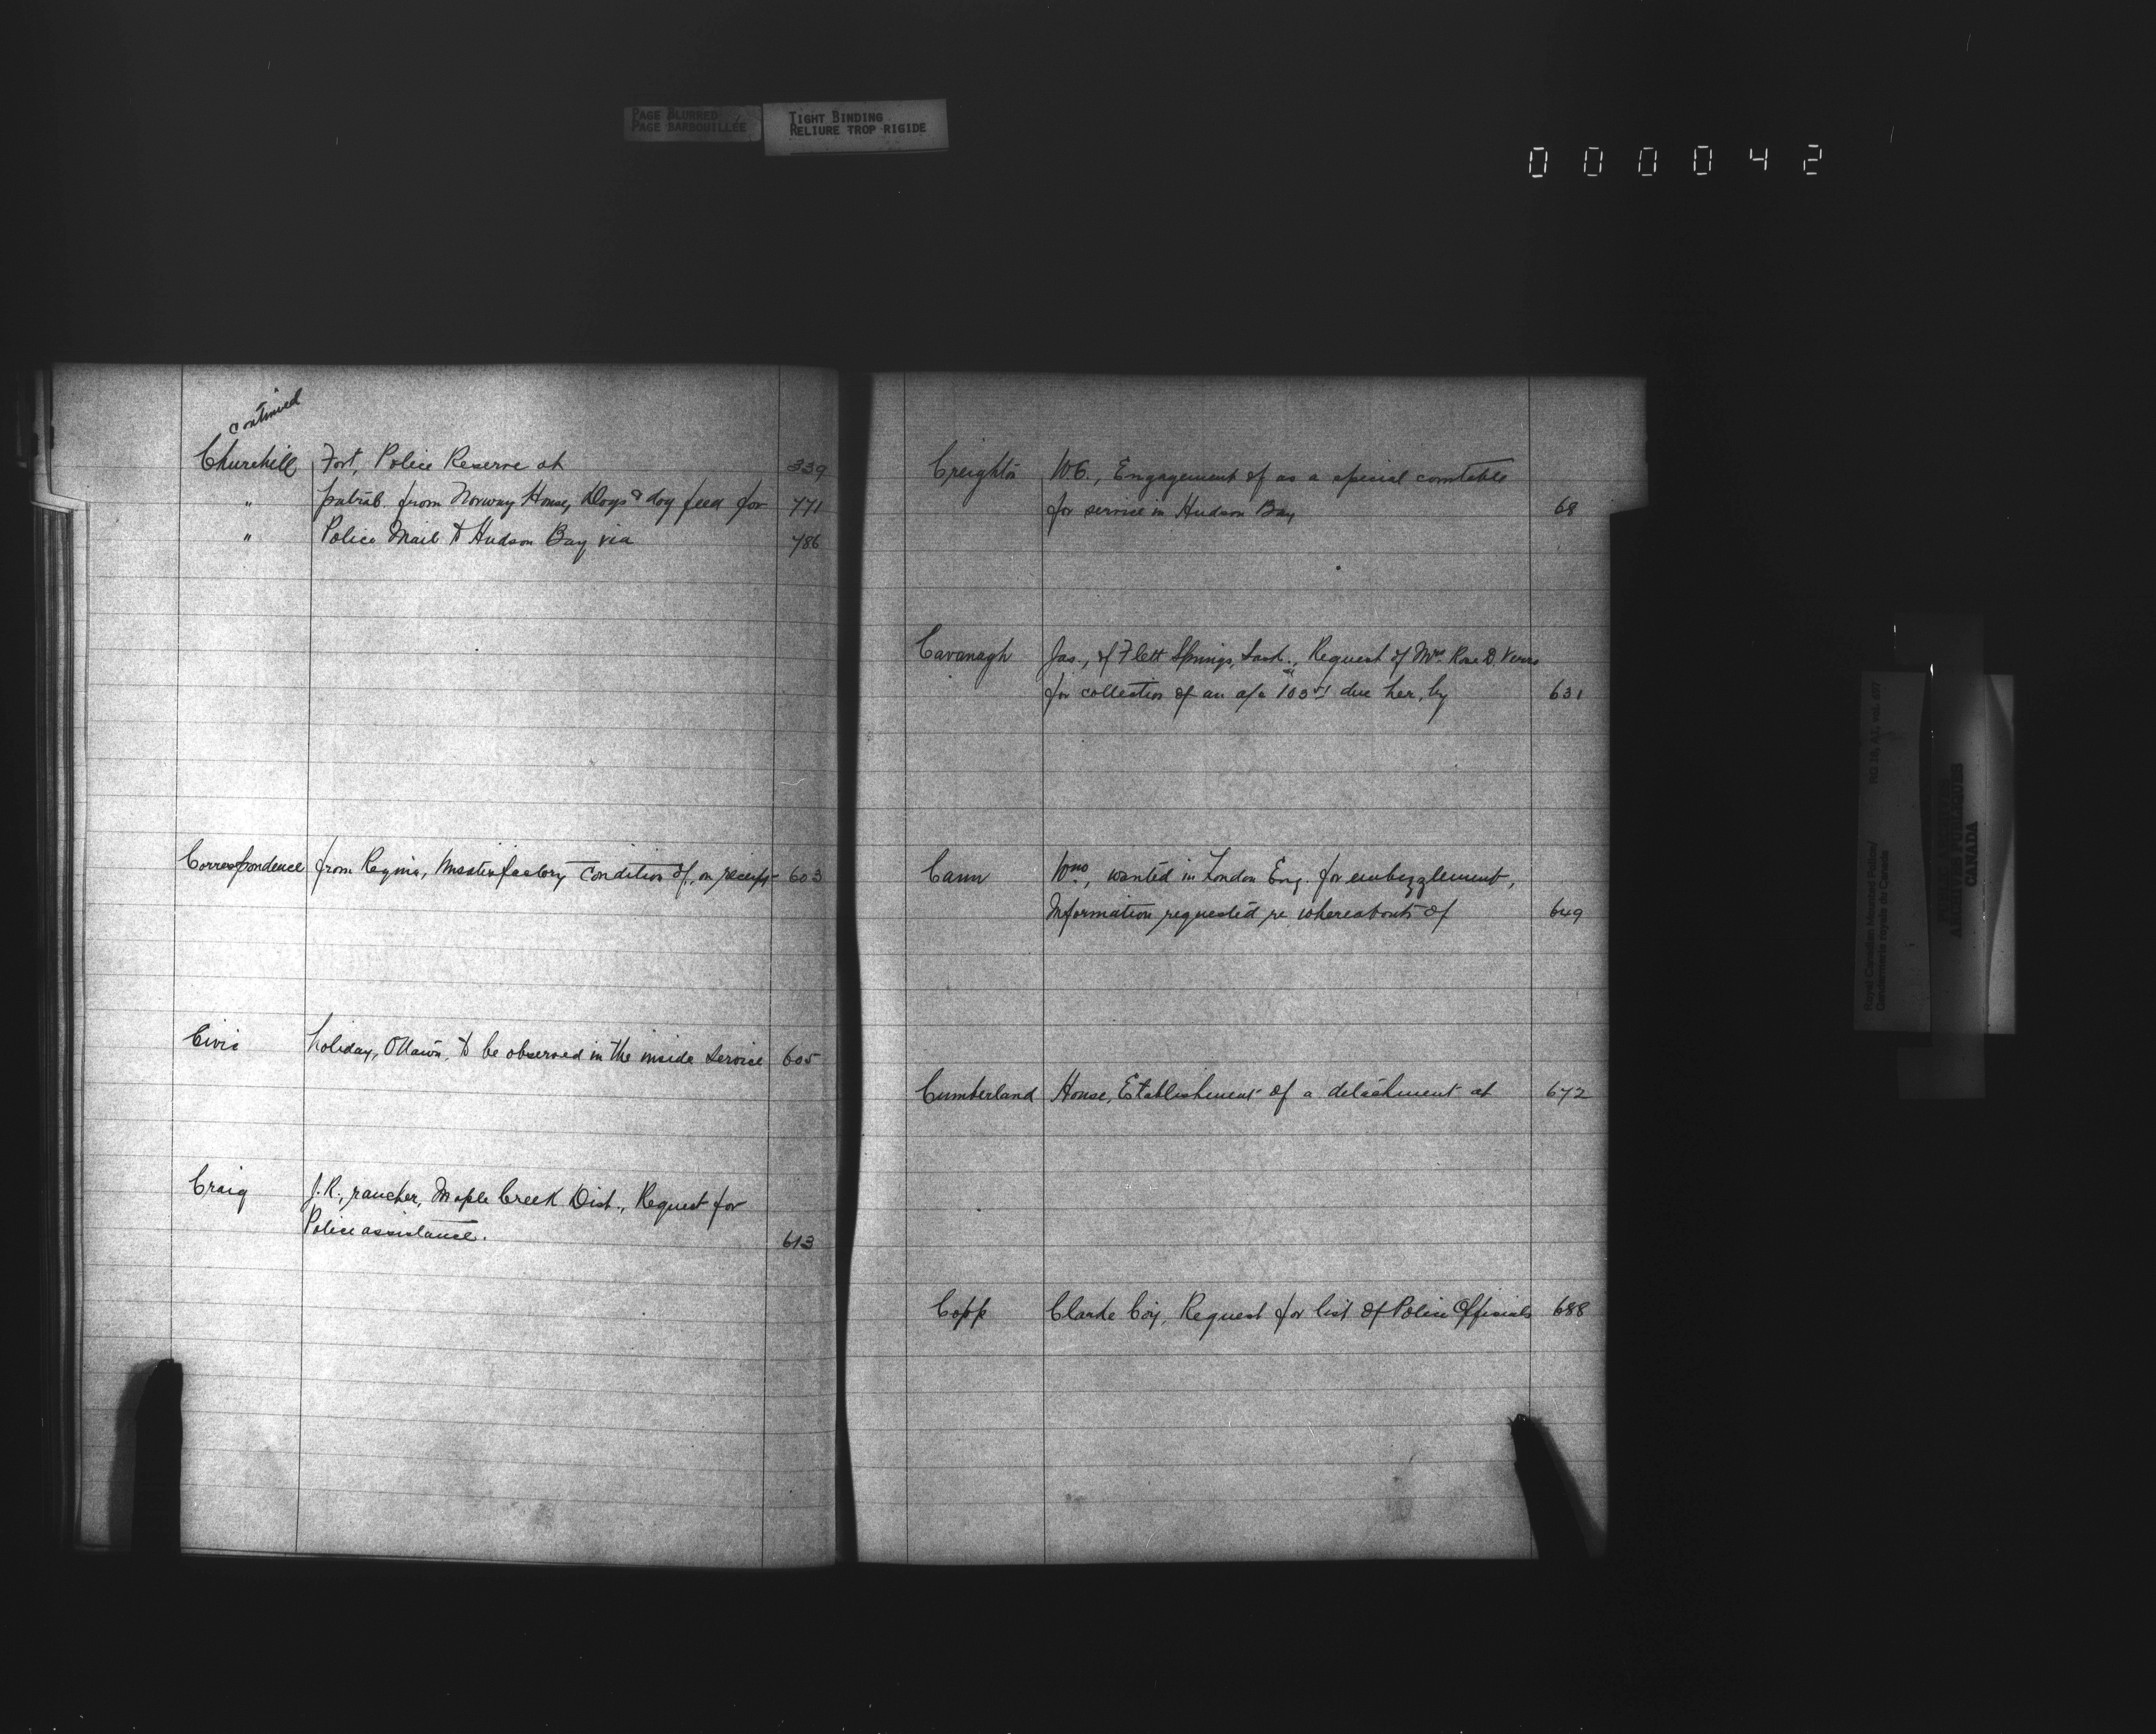 PAGE BLURRED
PAGE BARBOUILLÉE
TIGHT BINDING
RELIURE TROP RIGIDE
000042
continued
Churchill Fort, Police Reserve at 339
" patrol from Norway House, Dogs & dog feed for 771
" Police Mail to Hudson Bay via 786
Correspondence from Regina, Unsatisfactory condition of, on receipt 603
Civic holiday, Ottawa, to be observed in the inside service 605
Craig J.R., rancher, Maple Creek Dist., Request for
Police assistance. 613
Creighton W.G., Engagement of as a special constable
for service in Hudson Bay 68
Cavanagh Jas., of Flett Springs, Sask., Request of Mrs. Rose D.
for collection of an a/c due her, by 631
Cann Wm., wanted in London Eng. for embezzlement,
Information requested re whereabouts of 649
Cumberland House, Establishment of a detachment at 672
Copp Clarke Coy, Request for list of Police Officials 688
Royal Canadian Mounted Police/ RG 18, A1, vol. 697
Gendarmerie royale du Canada
PUBLIC ARCHIVES
ARCHIVES PUBLIQUES
CANADA